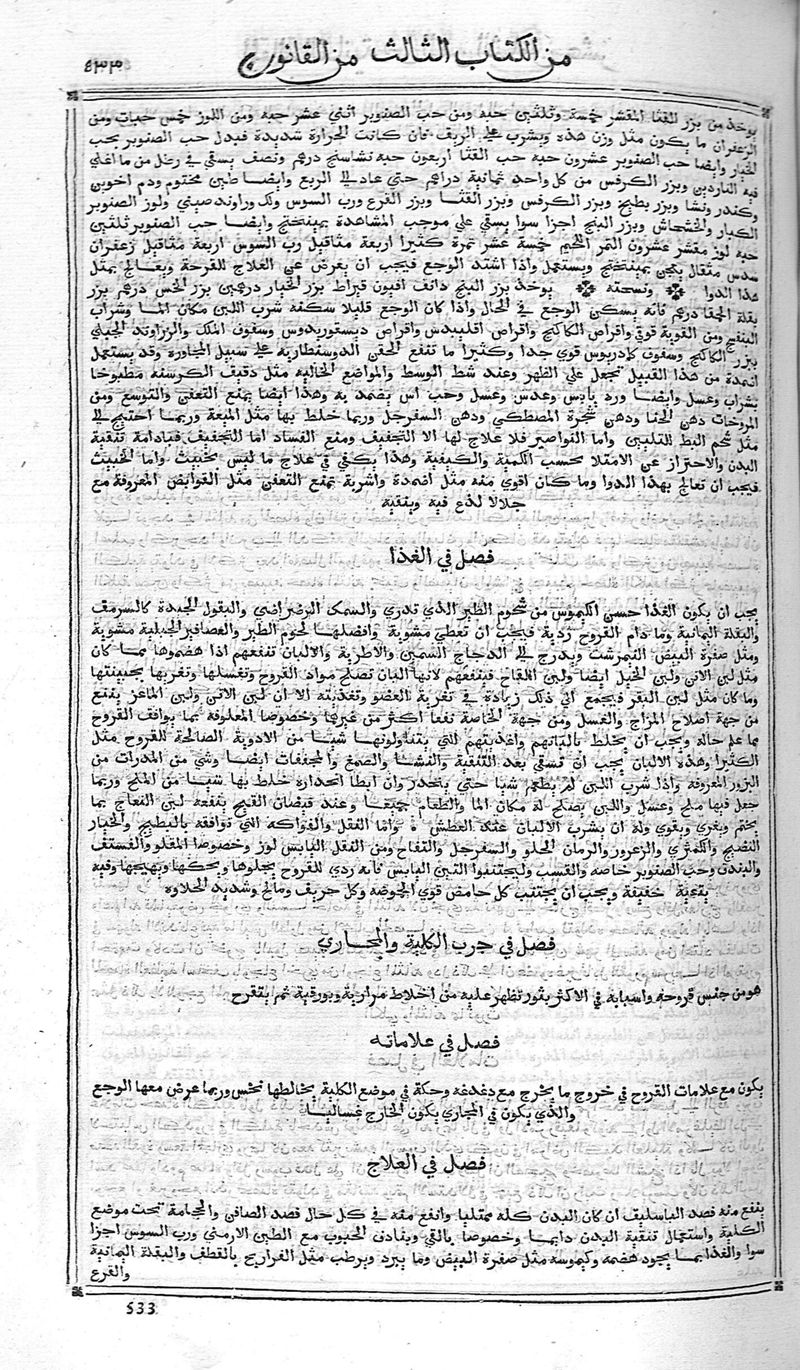 من الكتاب الثالث من القانون
٥٣٣
يوخذ من بزر القثا المقشر خمسة وثلثين حبه ومن حب الصنوبر اثني عشر حبه ومن اللوز خمس حبات ومن
الزعفران ما يكون مثل وزن هذه ويشرب على الريق فان كانت الحرارة شديدة فبدل حب الصنوبر بحب
الخيار وايضا حب الصنوبر عشرون حبه حب القثا أربعون حبه نشاستج درهم ونصف يسقي في رطل من ما اغلي
فيه الناردين وبزر الكرفس من كل واحد ثمانية دراهم حتي عاد الي الربع وايضا طين مختوم ودم اخوين
وكندر ونشا وبزر بطيخ وبزر الكرفس وبزر القثا وبزر القرع ورب السوس ولك وراوند صيني ولوز الصنوبر
الكبار والخشخاش وبزر البنج اجزا سوا يسقي علي موجب المشاهدة بميبختج وايضا حب الصنوبر ثلثين
حبه لوز مقشر عشرون التمر اللحيم خمسة عشر تمرة كثيرا اربعة مثاقيل رب السوس اربعة مثاقيل زعفران
سدس مثقال يعجن بميبختج ويستعمل واذا اشتد الوجع فيجب ان يعرض عن العلاج للقرحة ويعالج بمثل
هذا الدوا ونسخته يوخذ بزر البنج دانف افيون قيراط بزر الخيار درهمين بزر الخس درهم بزر
بقلة الحمقا درهم فانه يسكن الوجع في الحال واذا كان الوجع قليلا سكنه شرب اللبن مكان الما وشراب
البنفسج ومن القوية قوي واقراص الكاكنج واقراص اقلبيدس واقراص ديسقوريدوس وسفوف الملك والزراوند الجبلي
بزر الكاكنج وسفوف كمادريوس قوي جدا وكثيرا ما تنفع الحقن الدوسنطارية علي سبيل المجاورة وقد يستعمل
اضمدة من هذا القبيل تجعل علي الظهر وعند شط الوسط والمواضع الخاليه مثل دقيف الكرسنه مطبوخا
بشراب وعسل وايضا ورد يابس وعدس وعسل وحب اس يضمد به وهذا ايضا يمنع التعفن والتوسع ومن
المروخات دهن الحنا ودهن شجرة المصطكي ودهن السفرجل وربما خلط بها مثل الميعة وربما احتيج الي
مثل شحم البط للتليين واما النواصير فلا علاج لها الا التجفيف ومنع الفساد اما التجفيف فبادامة تنقية
البدن والاحتراز عن الامتلا بحسب الكمية والكيفية وهذا يكفي في علاج ما ليس بخبيث واما الخبيث
فيجب ان تعالج بهذا الدوا وما كان اقوي منه مثل اضمدة واشربة تمنع التعفن مثل القوابض المعروفة مع
جلالا لذع فيه وينقية
فصل في الغذا
يجب ان يكون الغذا حسن الكيموس من شحوم الطير الذي تدري والسمك الرضراضي والبقول الجيدة كالسرمف
والبقلة اليمانية وما دام القروح ردية فيجب ان تعطي مشوية وافضلها لحوم الطير والعصافير الجبلية مشوية
ومثل صفرة البيض النيمرشت ويدرج الي الدجاج السمين والاطرية والالبان تنفعهم اذا هضموها مما كان
مثل لبن الاتن ولبن الخيل ايضا ولبن اللقاح فينفعهم لانها البان تصلح مواد القروح وتغسلها وتغريها بجبنيتها
وما كان مثل لبن البقر فيجمع الي ذلك زيادة في تغرية العضو وتغذيته الا ان لبن الاتن ولبن الماعز ينفع
من جهة اصلاح المزاج والغسل ومن جهة الخاصة نفعا اكثر من غيرها وخصوصا المعلوفة بما يوافف القروح
بما علم حاله ويجب ان يخلط بالبانهم واغذيتهم التي يتناولونها شيا من الادوية الصالحة للقروح مثل
الكثيرا وهذه الالبان يجب ان تسقي بعد التنقية والنشا والصمغ والمجففات ايضا وشي من المدرات من
البزور المعروفه واذا شرب اللبن لم يطعم شيا حتي ينحدر وان ابطا انحداره خلط بها شيا من الملح وربما
جعل فيها ملح وعسل واللبن يصلح له مكان الما والطعام جميعا وعند قيضان القيح ينفعه لبن النعاج بما
يختم ويغري ويقوي وله ان يشرب الالبان عند العطش واما النقل والفواكه التي توافقه فالبطيخ والخيار
النضيج والكمثري والزعرور والرمان الحلو والسفرجل والتفاح ومن النقل اليابس لوز وخصوصا المقلو والفستف
والبندق وحب الصنوبر خاصه والقسب وليجتنبوا التين اليابس فانه ردي للقروح يجلوها ويحكها ويهيجها وفيه
يتعية خفيفة ويجب ان يجتنب كل حامض قوي الحموضه وكل حريف ومالح وشديد الحلاوه
فصل في جرب الكلية والمجاري
هو من جنس قروحه واسبابه في الاكثر بثور تظهر عليه من اخلاط مرارية وبورقية ثم يتقرح
فصل في علاماته
يكون مع علامات القروح في خروج ما يخرج مع دغدغه وحكة في موضع الكلية يخالطها نخس وربما عرض معها الوجع
والذي يكون في المجاري يكون الخارج غساليا
فصل في العلاج
ينفع منه فصد الباسليف ان كان البدن كله ممتليا وانفع منه في كل حال فصد الصافن والحجامة تحت موضع
الكلية واستعمال تنقية البدن دايما وخصوصا بالقي وبنادق الحبوب مع الطين الارمني ورب السوس اجزا
سوا والغذا بما يجود هضمه وكيموسه مثل صفرة البيض وما يبرد ويرطب مثل الفراريج بالقطف والبقلة اليمانية
والقرع
533